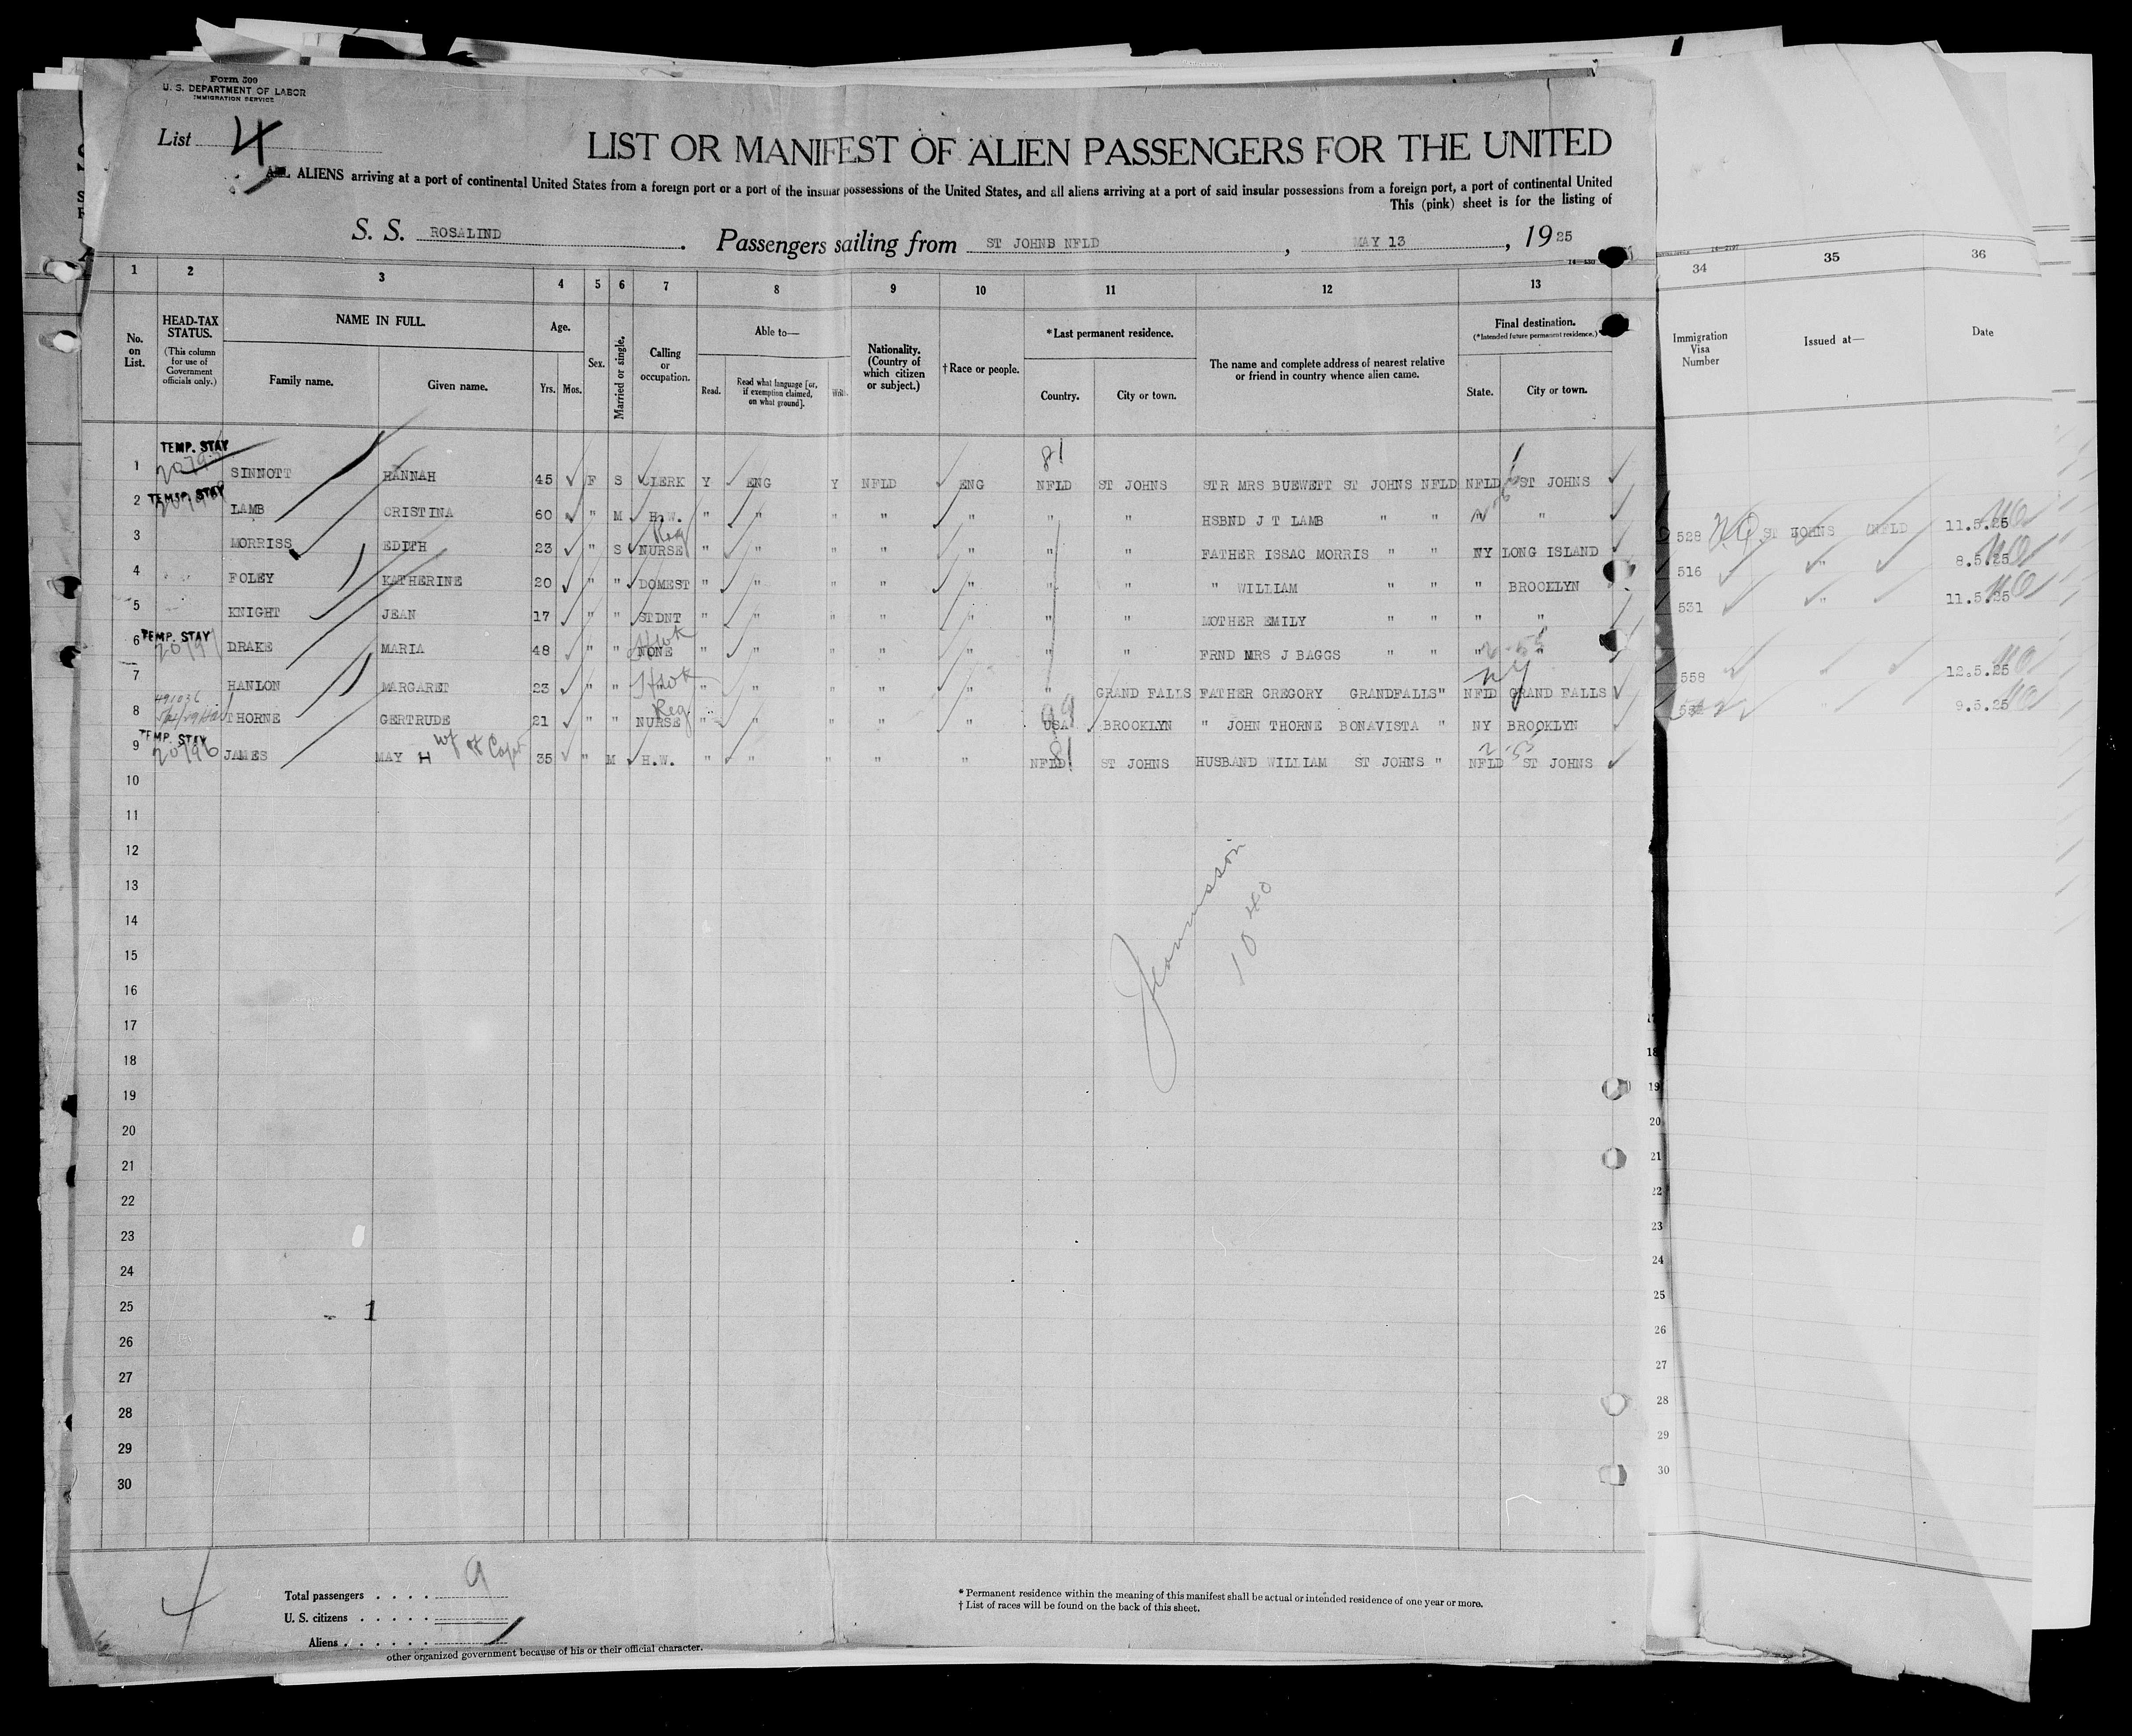 Form 500
U. S. DEPARTMENT OF LABOR
IMMIGRATION SERVICE
List 4
LIST OR MANIFEST OF ALIEN PASSENGERS FOR THE UNITED
ALL ALIENS arriving at a port of continental United States from a foreign port or a port of the insular possessions of the United States, and all aliens arriving at a port of said insular possessions from a foreign port, a port of continental United
This (pink) sheet is for the listing of
S. S. ROSALIND. Passengers sailing from ST JOHNB NFLD, MAY 13, 1925
1 2 3 4 5 6 7 8 9 10 11 12 13 34 35 36
No. on List. HEAD-TAX STATUS. (This column for use of Government officials only.) NAME IN FULL. Age. Sex. Married or single. Calling or occupation. Able to— Nationality. (Country of which citizen or subject.) †Race or people. *Last permanent residence. The name and complete address of nearest relative or friend in country whence alien came. Final destination. (*Intended future permanent residence.) Immigration Visa Number Issued at— Date
Family name. Given name. Yrs. Mos. Read. Read what language [or, if exemption claimed, on what ground]. Write. Country. City or town. State. City or town.
TEMP. STAY 81
1 SINNOTT HANNAH 45 F S CLERK Y ENG Y NFLD ENG NFLD ST JOHNS STR MRS BUEWETT ST JOHNS NFLD NFLD ST JOHNS
TEMP. STAY
2 LAMB CRISTINA 60 " M H.W. " " " " " " " HSBND J T LAMB " " " "
Reg
3 MORRISS EDITH 23 " S NURSE " " " " " " " FATHER ISSAC MORRIS " " NY LONG ISLAND 528 ST JOHNS NFLD 11.5.25
4 FOLEY KATHERINE 20 " " DOMEST " " " " " " " " WILLIAM " " " BROOKLYN 516 " 8.5.25
5 KNIGHT JEAN 17 " " STDNT " " " " " " " MOTHER EMILY " " " " 531 " 11.5.25
TEMP. STAY 20797 Hswk
6 DRAKE MARIA 48 " " NONE " " " " " " " FRND MRS J BAGGS " " " "
Hswk NY
7 HANLON MARGARET 23 " " " " " " " " " GRAND FALLS FATHER GREGORY GRANDFALLS" NFLD GRAND FALLS 558 12.5.25
Reg 99
8 THORNE GERTRUDE 21 " " NURSE " " " " " USA BROOKLYN " JOHN THORNE BONAVISTA " NY BROOKLYN " 9.5.25
TEMP. STAY 20796 wf of Capt 81
9 JAMES MAY H 35 " M H.W. " " " " " NFLD ST JOHNS HUSBAND WILLIAM ST JOHNS " NFLD ST JOHNS
10
11
12
13
14
15
16
17
18 18
19 19
20 20
21 21
22 22
23 23
24 24
25 - 1 25
26 26
27 27
28 28
29 29
30 30
10 40
Total passengers . . . . 9
U. S. citizens . . . . .
Aliens . . . . . .
* Permanent residence within the meaning of this manifest shall be actual or intended residence of one year or more.
† List of races will be found on the back of this sheet.
other organized government because of his or their official character.